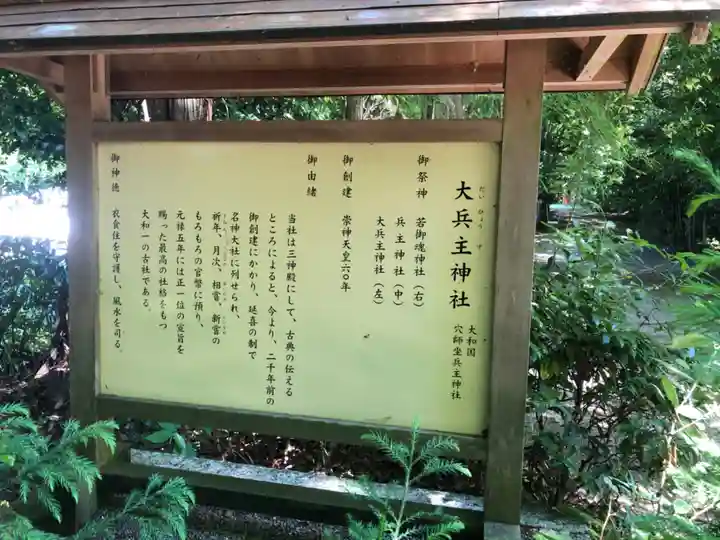 大兵主神社
だいひょうず
大和国
穴師坐兵主神社
御祭神 若御魂神社(右)
兵主神社(中)
大兵主神社(左)
御創建 崇神天皇六〇年
御由緒
当社は三神殿にして、古典の伝える
ところによると、今より、二千年前の
御創建にかかり、延喜の制で
名神大社に列せられ、
祈年、月次、相嘗、新嘗の
もろもろの官幣に預り、
元禄五年には正一位の宣旨を
賜った最高の社格をもつ
大和一の古社である。
御神徳 衣食住を守護し、風水を司る。